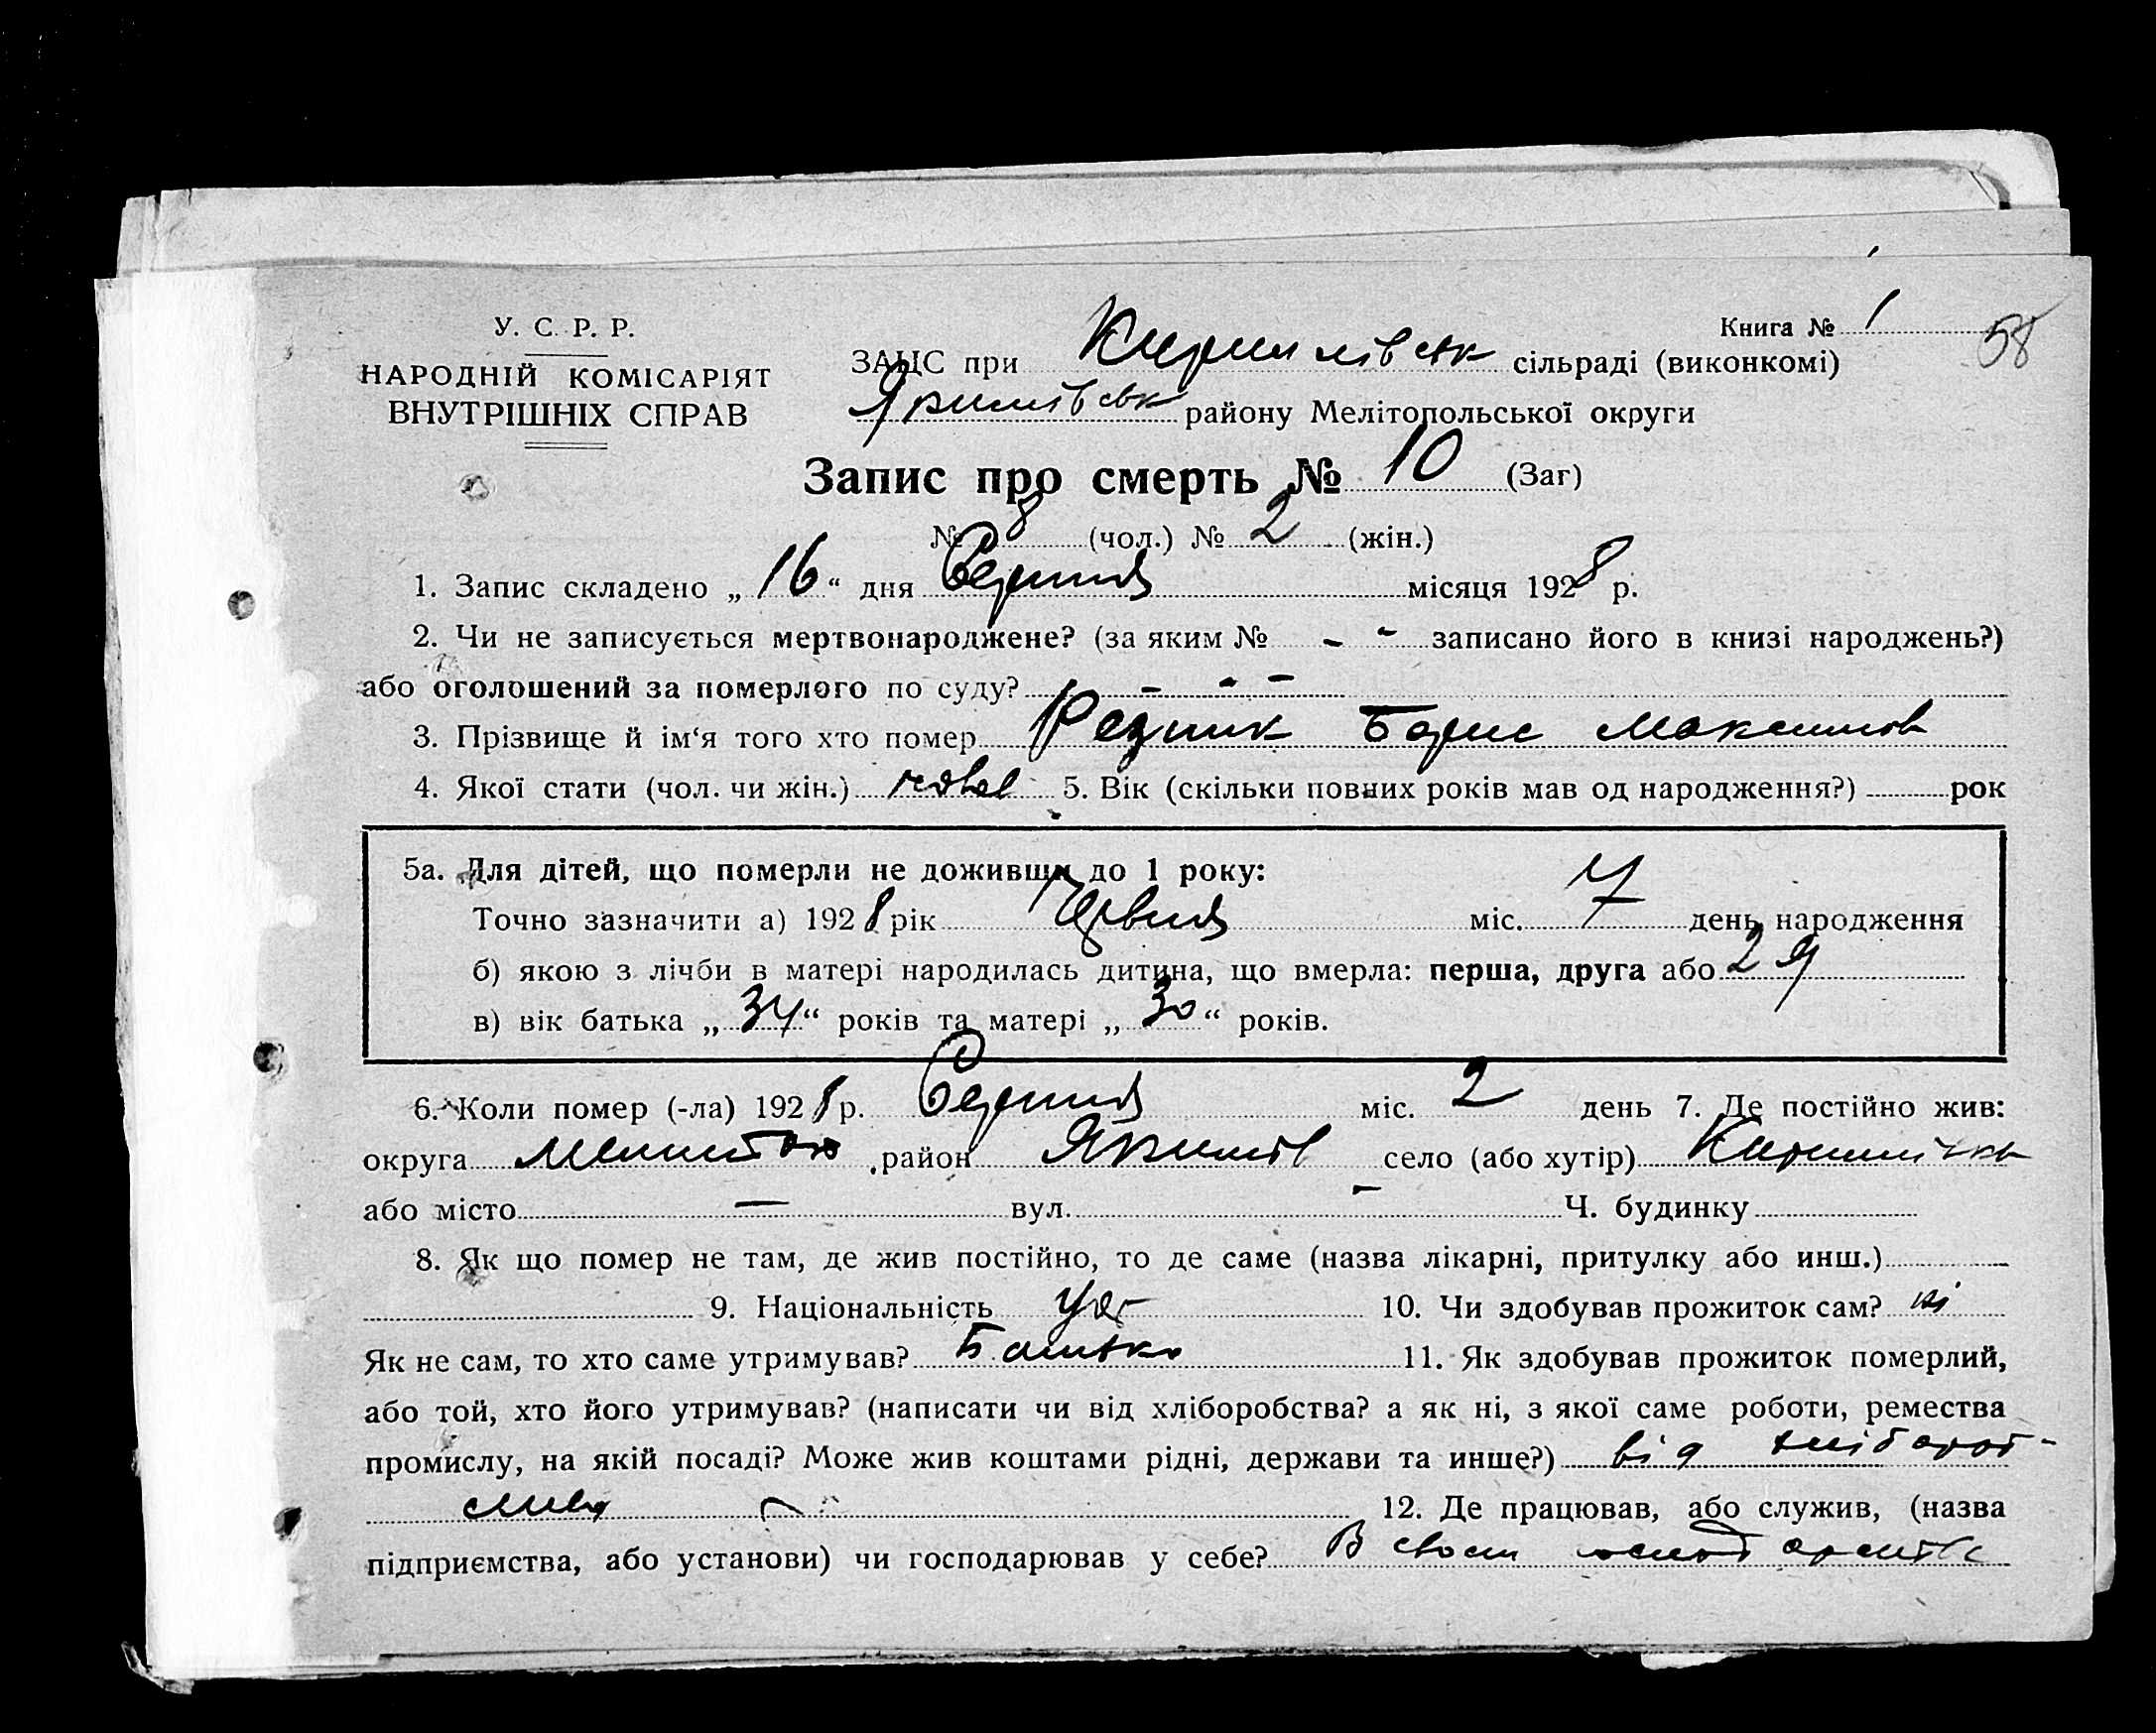 Книга № 1 58
У. С. Р. Р.
ЗАЦС при Кирилівськ сільраді (виконкомі)
НАРОДНІЙ КОМІСАРІЯТ
ВНУТРІШНІХ СПРАВ
Якимівськ району Мелітопольської округи
Запис про смерть № 10 (Заг)
№ 8 (чол.) № 2 (жін.)
1. Запис складено „ 16 “ дня Серпня місяця 1928 р.
2. Чи не записується мертвонароджене? (за яким № - - записано його в книзі народжень?)
або оголошений за померлого по суду? - - -
3. Прізвище й ім‘я того хто помер Резник Борис Максимов
4. Якої стати (чол. чи жін.) 5. Вік (скільки повних років мав од народження?) рок
5а. Для дітей, що померли не доживши до 1 року:
Точно зазначити а) 1928 рік міс. 7 день народження
б) якою з лічби в матері народилась дитина, що вмерла: перша, друга або
в) вік батька „ 34 “ років та матері „ 30 “ років.
6. Коли помер (-ла) 1928 р. Серпня міс. 2 день 7. Де постійно жив:
округа район Якимів село (або хутір) Кирилівка
або місто — вул. - Ч. будинку
8. Як що помер не там, де жив постійно, то де саме (назва лікарні, притулку або инш.)
9. Національність Укр 10. Чи здобував прожиток сам? ні
Як не сам, то хто саме утримував? Батько 11. Як здобував прожиток померлий,
або той, хто його утримував? (написати чи від хліборобства? а як ні, з якої саме роботи, ремества
промислу, на якій посаді? Може жив коштами рідні, держави та инше?) від хлібороб-
ства 12. Де працював, або служив, (назва
підприємства, або установи) чи господарював у себе? В своем